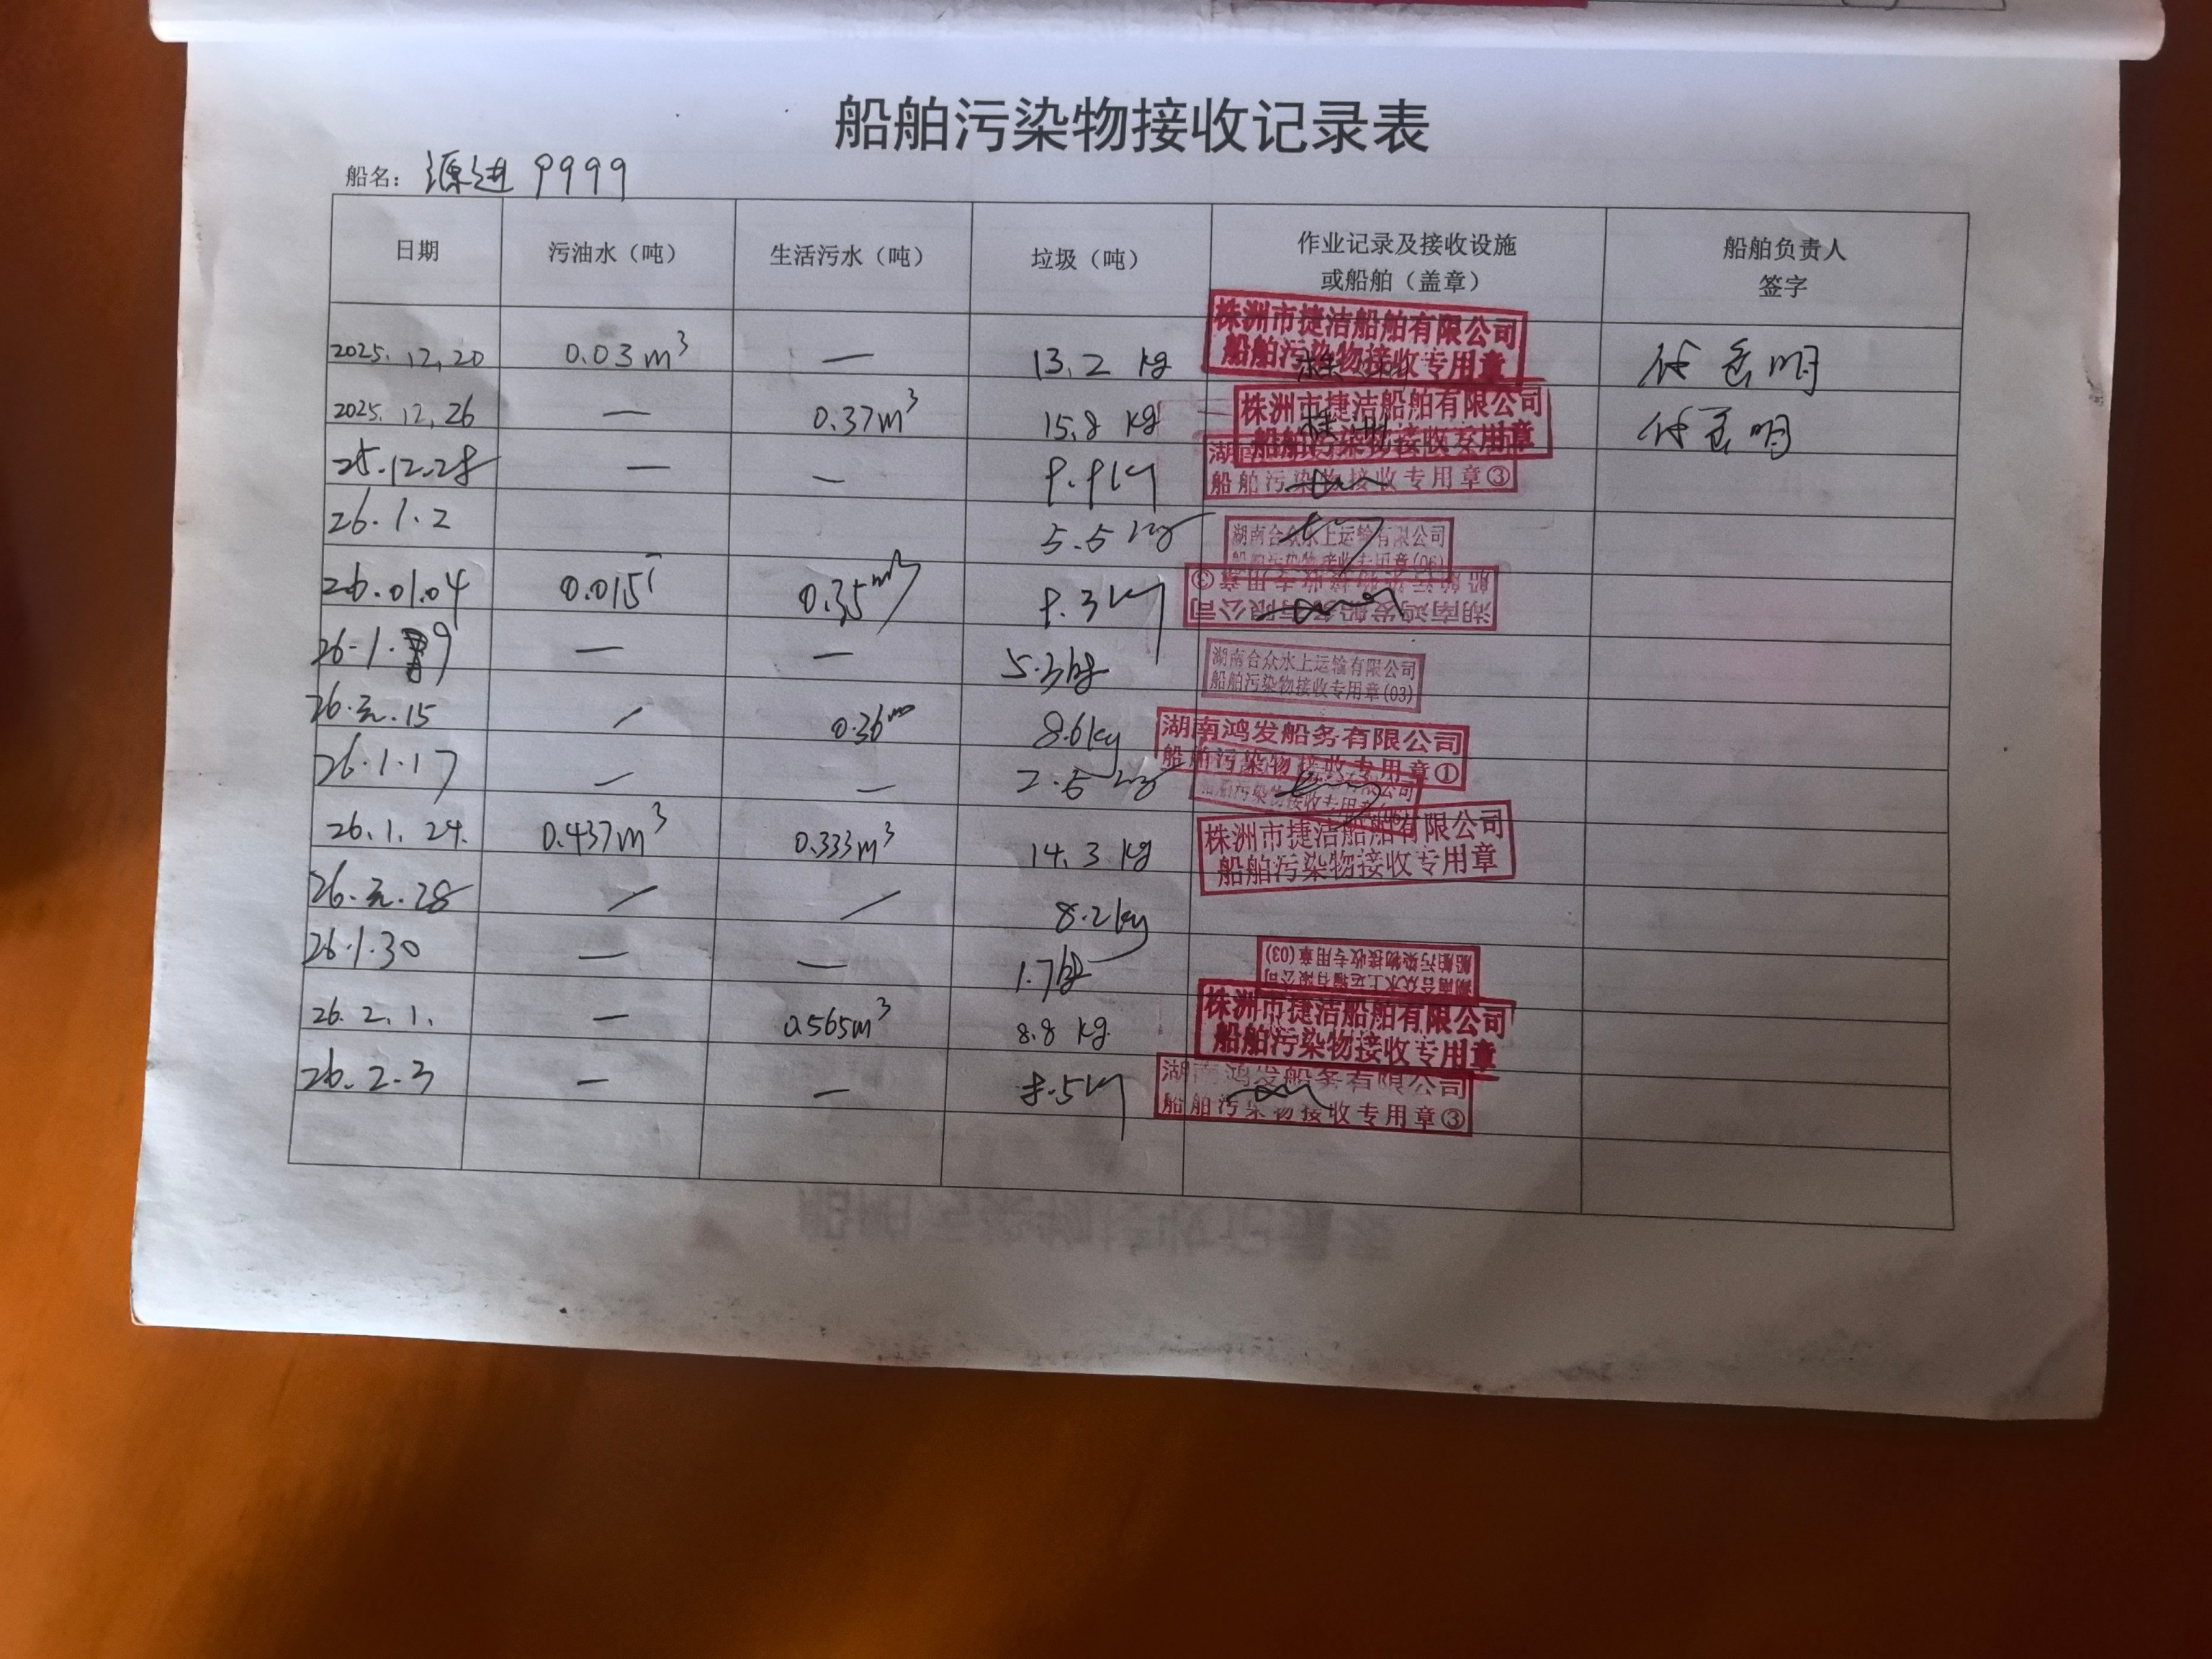 船舶污染物接收记录表
船名： 源进 9999
日期 污油水（吨） 生活污水（吨） 垃圾（吨） 作业记录及接收设施 或船舶（盖章） 船舶负责人 签字
2025.12.20 0.03m³ — 13.2 kg 株洲市捷洁船舶有限公司 船舶污染物接收专用章
2025.12.26 — 0.37m³ 15.8 kg 株洲市捷洁船舶有限公司 船舶污染物接收专用章
25.12.28 — — 9.9kg 船舶污染物接收专用章③
26.1.2 5.5kg 湖南合众水上运输有限公司 船舶污染物接收专用章(06)
26.01.04 0.015 0.35m³ 9.3kg 湖南鸿发船务有限公司 船舶污染物接收专用章③
26.1.9 — — 5.3kg 湖南合众水上运输有限公司 船舶污染物接收专用章(03)
26.元.15 / 0.36m³ 8.6kg 湖南鸿发船务有限公司 船舶污染物接收专用章①
26.1.17 — — 2.5kg 船舶污染物接收专用章(06)
26.1.24. 0.437m³ 0.333m³ 14.3 kg 株洲市捷洁船舶有限公司 船舶污染物接收专用章
26.元.28 / / 8.2kg
26.1.30 — — 1.7kg 湖南合众水上运输有限公司 船舶污染物接收专用章(03)
26.2.1. — 0.565m³ 8.8 kg 株洲市捷洁船舶有限公司 船舶污染物接收专用章
26.2.3 — — 8.5kg 湖南鸿发船务有限公司 船舶污染物接收专用章③